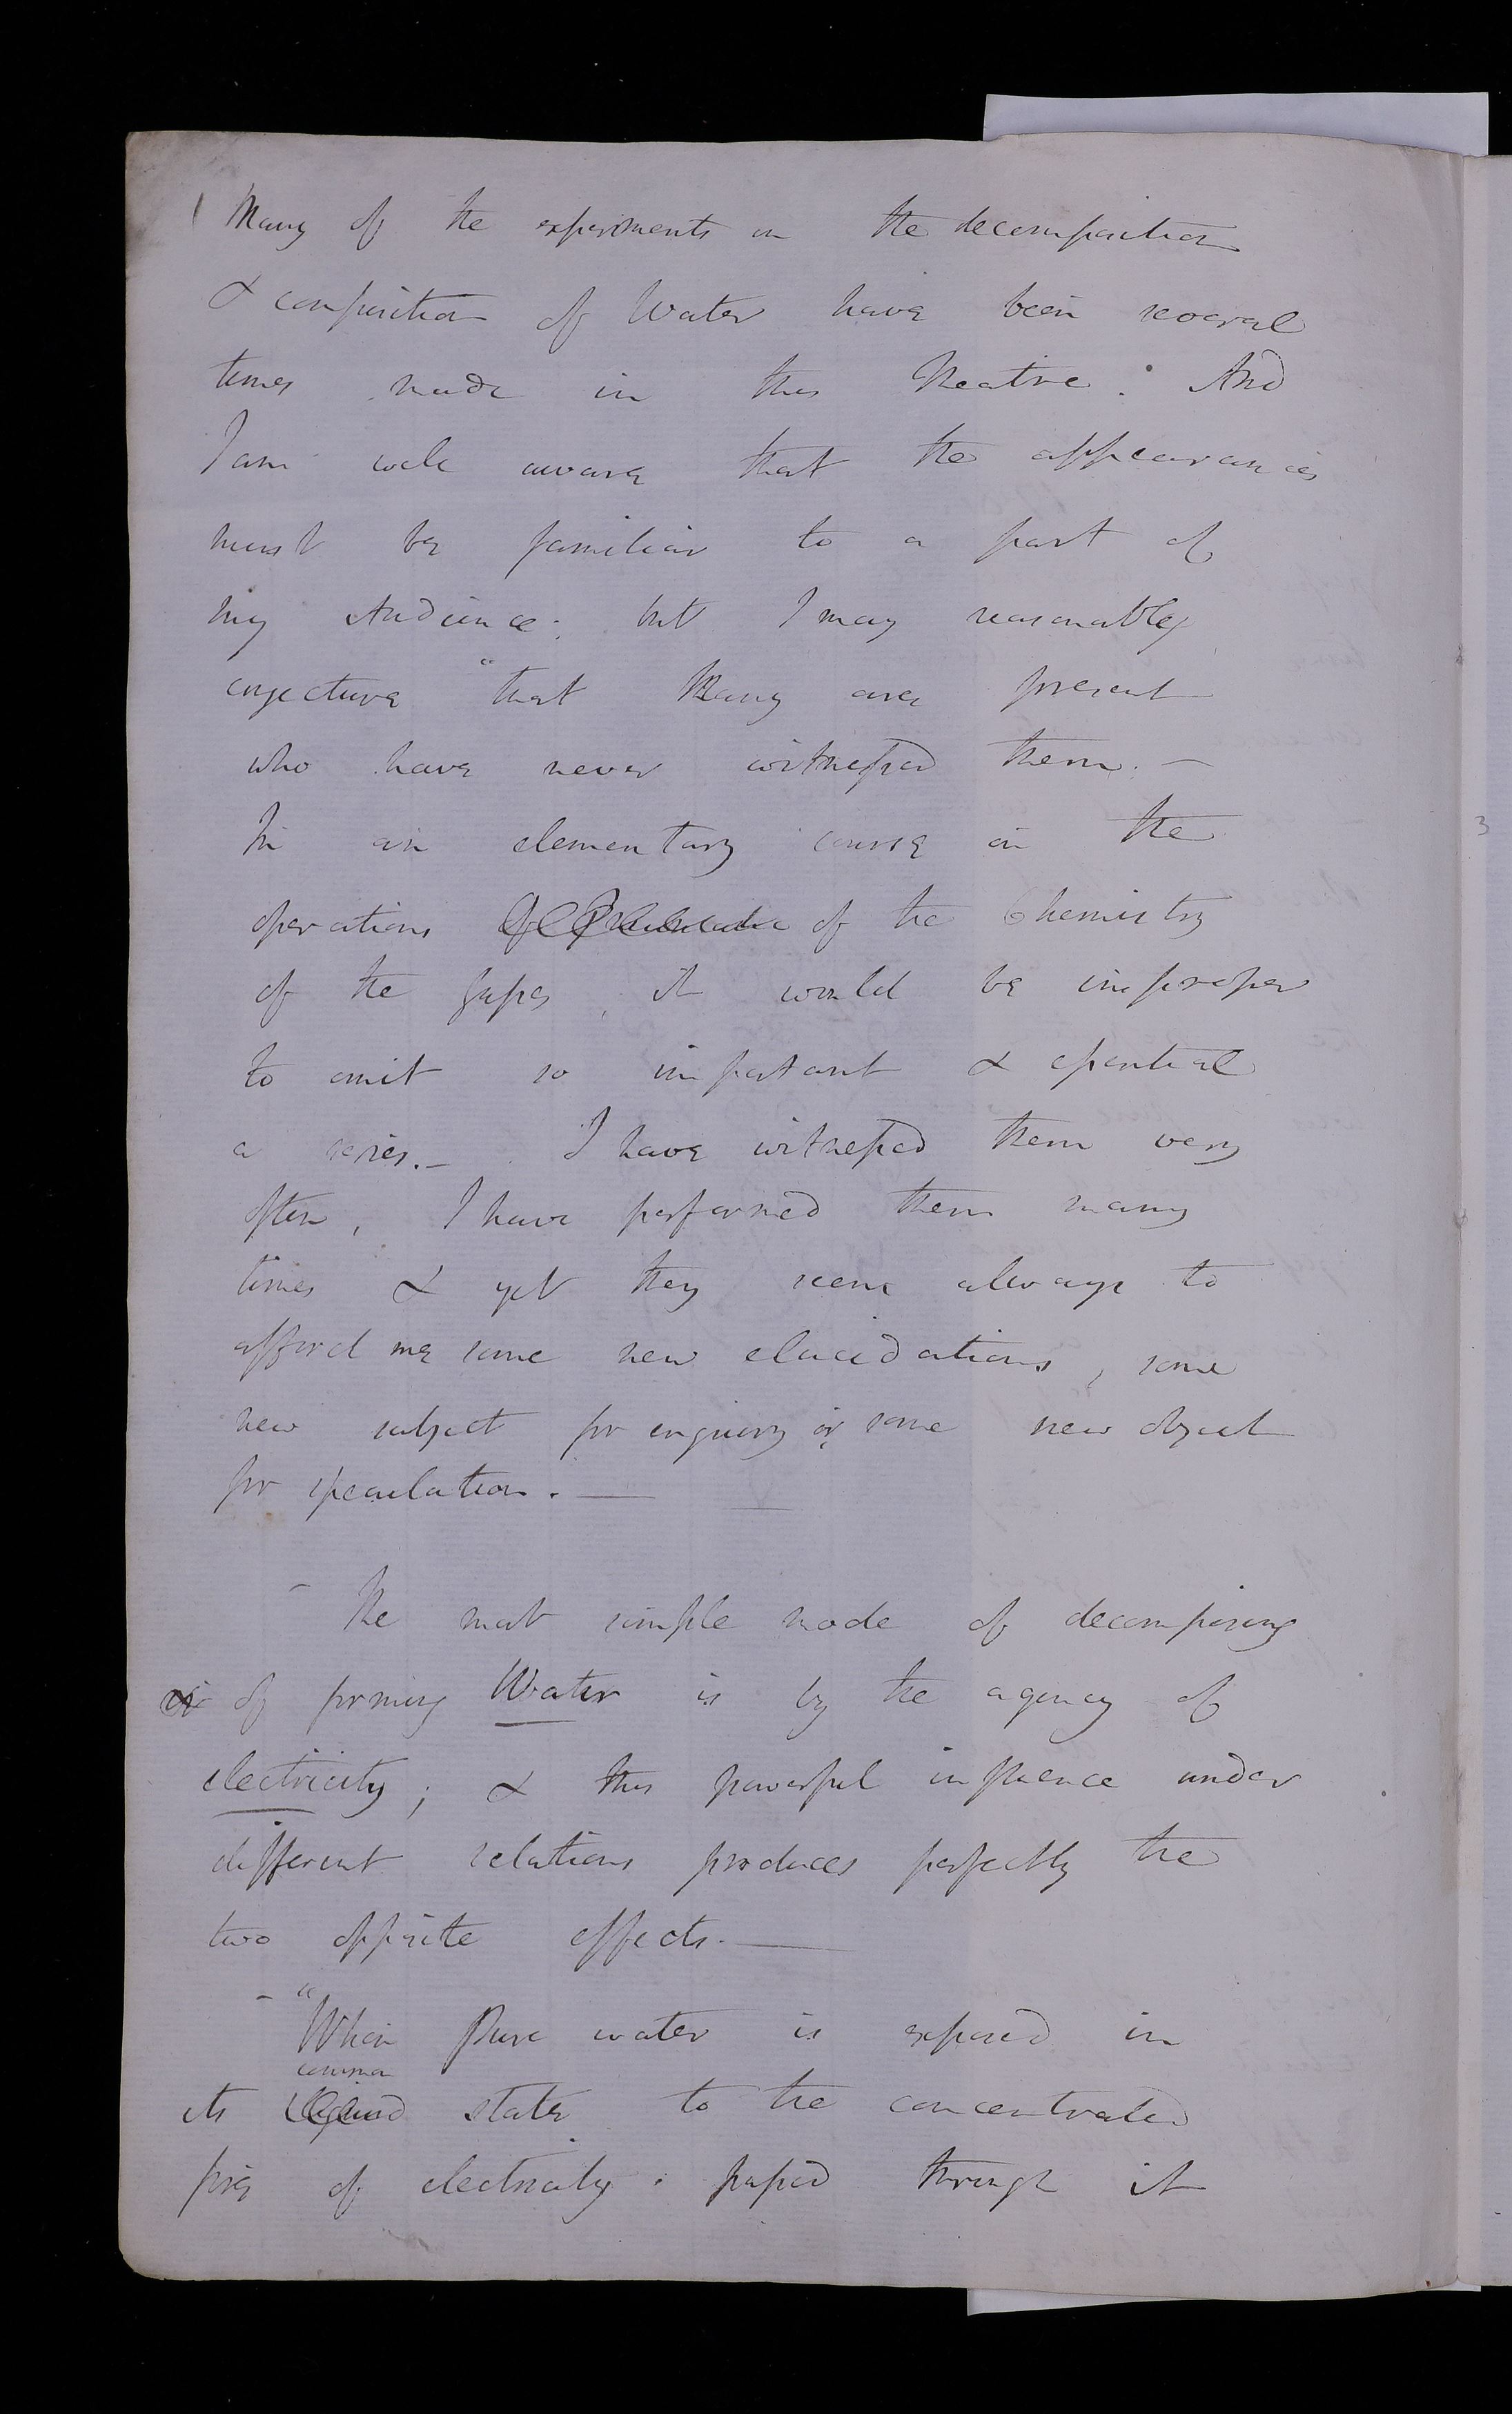 Many of the experiments on the decomposition
& composition of Water have been several
times made in this Theatre. And
I am well aware that the appearances
must be familiar to a part of
my Audience; but I may reasonably
conjecture "that Many are present
who have never witnessed them. —
In an elementary course on the
operations of the Chemistry
of the gases, it would be improper
to omit so important & essential
a series. — I have witnessed them very
often, I have performed them many
times & yet they seem always to
afford me some new elucidations, some
new subject for enquiry or some new object
for speculation. —
- The most simple mode of decomposing
or of forming Water is by the agency of
electricity; & this powerful influence under
different relations produces perfectly the
two opposite effects. —
- "When Pure water is exposed in
common
its liquid state to the concentrated
fire of electricity. passed through it
3